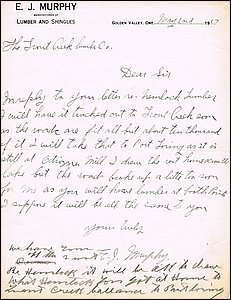 E. J. MURPHY
MANUFACTURER OF
LUMBER AND SHINGLES
GOLDEN VALLEY, ONT. May 2nd 19
The Trout Creek Co.
Dear Sir
In reply to your letter re. Hemlock Lumber
I will have it trucked out to Trout Creek soon
as the roads are fit all but about ten thousand
of it I will take that to Port Loring as it is
still at Mill I drew the cut
Lake but the road broke up a little too soon
for me as your will have lumber at both
I suppose it will be all the same to you
Yours Truly
E. J. Murphy
we have room
the Hemlock it will be to draw
what Hemlock you got at Home to
Trout Creek ballance to Port Loring